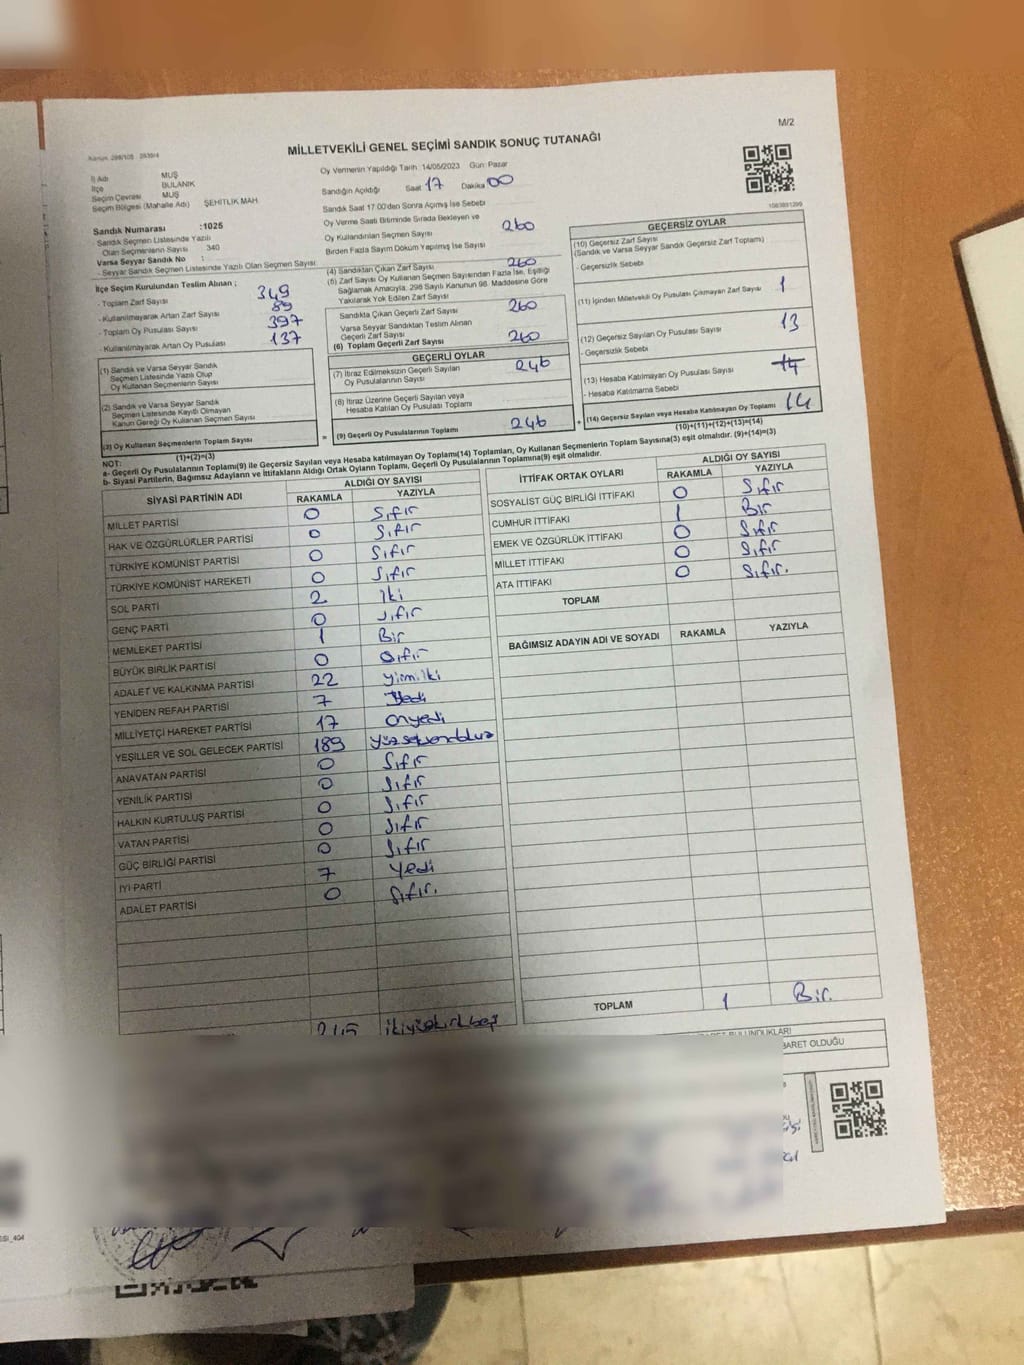 M/2
MİLLETVEKİLİ GENEL SEÇİMİ SANDIK SONUÇ TUTANAĞI
İl Adı MUŞ
İlçe BULANIK
Seçim Çevresi MUŞ
Seçim Bölgesi (Mahalle Adı) ŞEHİTLİK MAH
Sandık Numarası :1025
Sandık Seçmen Listesinde Yazılı
Olan Seçmenlerin Sayısı : 340
Varsa Seyyar Sandık No :
- Seyyar Sandık Seçmen Listesinde Yazılı Olan Seçmen Sayısı:
Oy Vermenin Yapıldığı Tarih: 14/05/2023 Gün: Pazar
Sandığın Açıldığı Saat 17 Dakika 00
Sandık Saat 17:00'den Sonra Açılmış İse Sebebi
Oy Verme Saati Bitiminde Sırada Bekleyen ve
Oy Kullandırılan Seçmen Sayısı 260
Birden Fazla Sayım Döküm Yapılmış İse Sayısı
İlçe Seçim Kurulundan Teslim Alınan ;
- Toplam Zarf Sayısı 349
- Kullanılmayarak Artan Zarf Sayısı 89
- Toplam Oy Pusulası Sayısı 397
- Kullanılmayarak Artan Oy Pusulası 137
(1) Sandık ve Varsa Seyyar Sandık
Seçmen Listesinde Yazılı Olup
Oy Kullanan Seçmenlerin Sayısı
(2) Sandık ve Varsa Seyyar Sandık
Seçmen Listesinde Kayıtlı Olmayan
Kanun Gereği Oy Kullanan Seçmen Sayısı
(3) Oy Kullanan Seçmenlerin Toplam Sayısı
(1)+(2)=(3)
(4) Sandıktan Çıkan Zarf Sayısı 260
(5) Zarf Sayısı Oy Kullanan Seçmen Sayısından Fazla İse, Eşitliği
Sağlamak Amacıyla, 298 Sayılı Kanunun 98. Maddesine Göre
Yakılarak Yok Edilen Zarf Sayısı
Sandıkta Çıkan Geçerli Zarf Sayısı 260
Varsa Seyyar Sandıktan Teslim Alınan
Geçerli Zarf Sayısı
(6) Toplam Geçerli Zarf Sayısı 260
GEÇERLİ OYLAR
(7) İtiraz Edilmeksizin Geçerli Sayılan
Oy Pusulalarının Sayısı 246
(8) İtiraz Üzerine Geçerli Sayılan veya
Hesaba Katılan Oy Pusulası Toplamı
= (9) Geçerli Oy Pusulalarının Toplamı 246
GEÇERSİZ OYLAR
(10) Geçersiz Zarf Sayısı
(Sandık ve Varsa Seyyar Sandık Geçersiz Zarf Toplam)
- Geçersizlik Sebebi
(11) İçinden Milletvekili Oy Pusulası Çıkmayan Zarf Sayısı 1
(12) Geçersiz Sayılan Oy Pusulası Sayısı 13
- Geçersizlik Sebebi
(13) Hesaba Katılmayan Oy Pusulası Sayısı 14
- Hesaba Katılmama Sebebi
+ (14) Geçersiz Sayılan veya Hesaba Katılmayan Oy Toplamı 14
(10)+(11)+(12)+(13)=(14)
NOT:
a- Geçerli Oy Pusulalarının Toplamı(9) ile Geçersiz Sayılan veya Hesaba katılmayan Oy Toplamı(14) Toplamları, Oy Kullanan Seçmenlerin Toplam Sayısına(3) eşit olmalıdır. (9)+(14)=(3)
b- Siyasi Partilerin, Bağımsız Adayların ve İttifakların Aldığı Ortak Oyların Toplamı, Geçerli Oy Pusulalarının Toplamına(9) eşit olmalıdır.
SİYASİ PARTİNİN ADI ALDIĞI OY SAYISI
RAKAMLA YAZIYLA
MİLLET PARTİSİ 0 Sıfır
HAK VE ÖZGÜRLÜKLER PARTİSİ 0 Sıfır
TÜRKİYE KOMÜNİST PARTİSİ 0 Sıfır
TÜRKİYE KOMÜNİST HAREKETİ 0 Sıfır
SOL PARTİ 2 İki
GENÇ PARTİ 0 Sıfır
MEMLEKET PARTİSİ 1 Bir
BÜYÜK BİRLİK PARTİSİ 0 Sıfır
ADALET VE KALKINMA PARTİSİ 22 yirmi iki
YENİDEN REFAH PARTİSİ 7 Yedi
MİLLİYETÇİ HAREKET PARTİSİ 17 Onyedi
YEŞİLLER VE SOL GELECEK PARTİSİ 189 yüzseksendokuz
ANAVATAN PARTİSİ 0 Sıfır
YENİLİK PARTİSİ 0 Sıfır
HALKIN KURTULUŞ PARTİSİ 0 Sıfır
VATAN PARTİSİ 0 Sıfır
GÜÇ BİRLİĞİ PARTİSİ 0 Sıfır
İYİ PARTİ 7 Yedi
ADALET PARTİSİ 0 Sıfır.
245 ikiyüzkırkbeş
İTTİFAK ORTAK OYLARI ALDIĞI OY SAYISI
RAKAMLA YAZIYLA
SOSYALİST GÜÇ BİRLİĞİ İTTİFAKI 0 Sıfır
CUMHUR İTTİFAKI 1 Bir
EMEK VE ÖZGÜRLÜK İTTİFAKI 0 Sıfır
MİLLET İTTİFAKI 0 Sıfır
ATA İTTİFAKI 0 Sıfır.
TOPLAM
BAĞIMSIZ ADAYIN ADI VE SOYADI RAKAMLA YAZIYLA
TOPLAM 1 Bir.
BULUNDUKLARI
BARET OLDUĞU